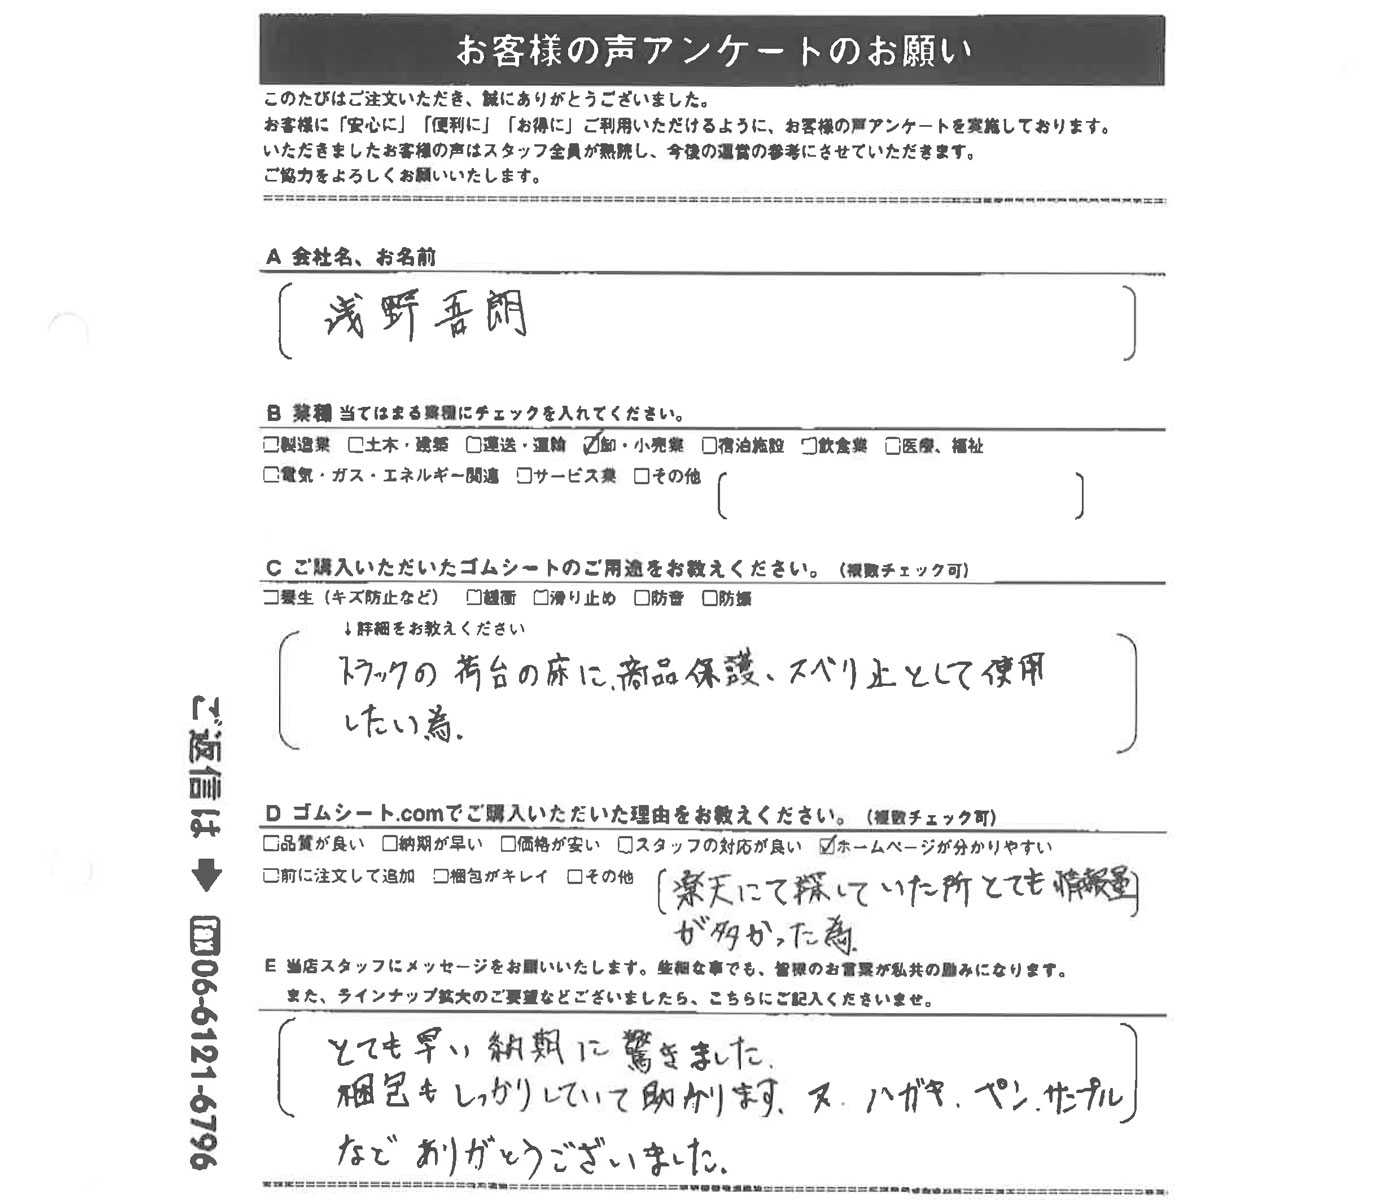 お客様の声アンケートのお願い
このたびはご注文いただき、誠にありがとうございました。
お客様に「安心に」「便利に」「お得に」ご利用いただけるように、お客様の声アンケートを実施しております。
いただきましたお客様の声はスタッフ全員が熟読し、今後の運営の参考にさせていただきます。
ご協力をよろしくお願いいたします。
A 会社名、お名前
浅野吾朗
B 業種 当てはまる業種にチェックを入れてください。
□製造業 □土木・建築 □運送・運輸 ☑卸・小売業 □宿泊施設 □飲食業 □医療、福祉
□電気・ガス・エネルギー関連 □サービス業 □その他
C ご購入いただいたゴムシートのご用途をお教えください。(複数チェック可)
□養生(キズ防止など) □緩衝 □滑り止め □防音 □防振
↓詳細をお教えください
トラックの荷台の床に、商品保護、スベリ止として使用
したい為.
D ゴムシート.comでご購入いただいた理由をお教えください。(複数チェック可)
□品質が良い □納期が早い □価格が安い □スタッフの対応が良い ☑ホームページが分かりやすい
□前に注文して追加 □梱包がキレイ □その他 楽天にて探していた所とても情報量
が多かった為.
E 当店スタッフにメッセージをお願いいたします。些細な事でも、皆様のお言葉が私共の励みになります。
また、ラインナップ拡大のご要望などございましたら、こちらにご記入くださいませ。
とても早い納期に驚きました.
梱包もしっかりしていて助かります. 又.ハガキ.ペン.サンプル
などありがとうございました.
ご返信は fax06-6121-6796